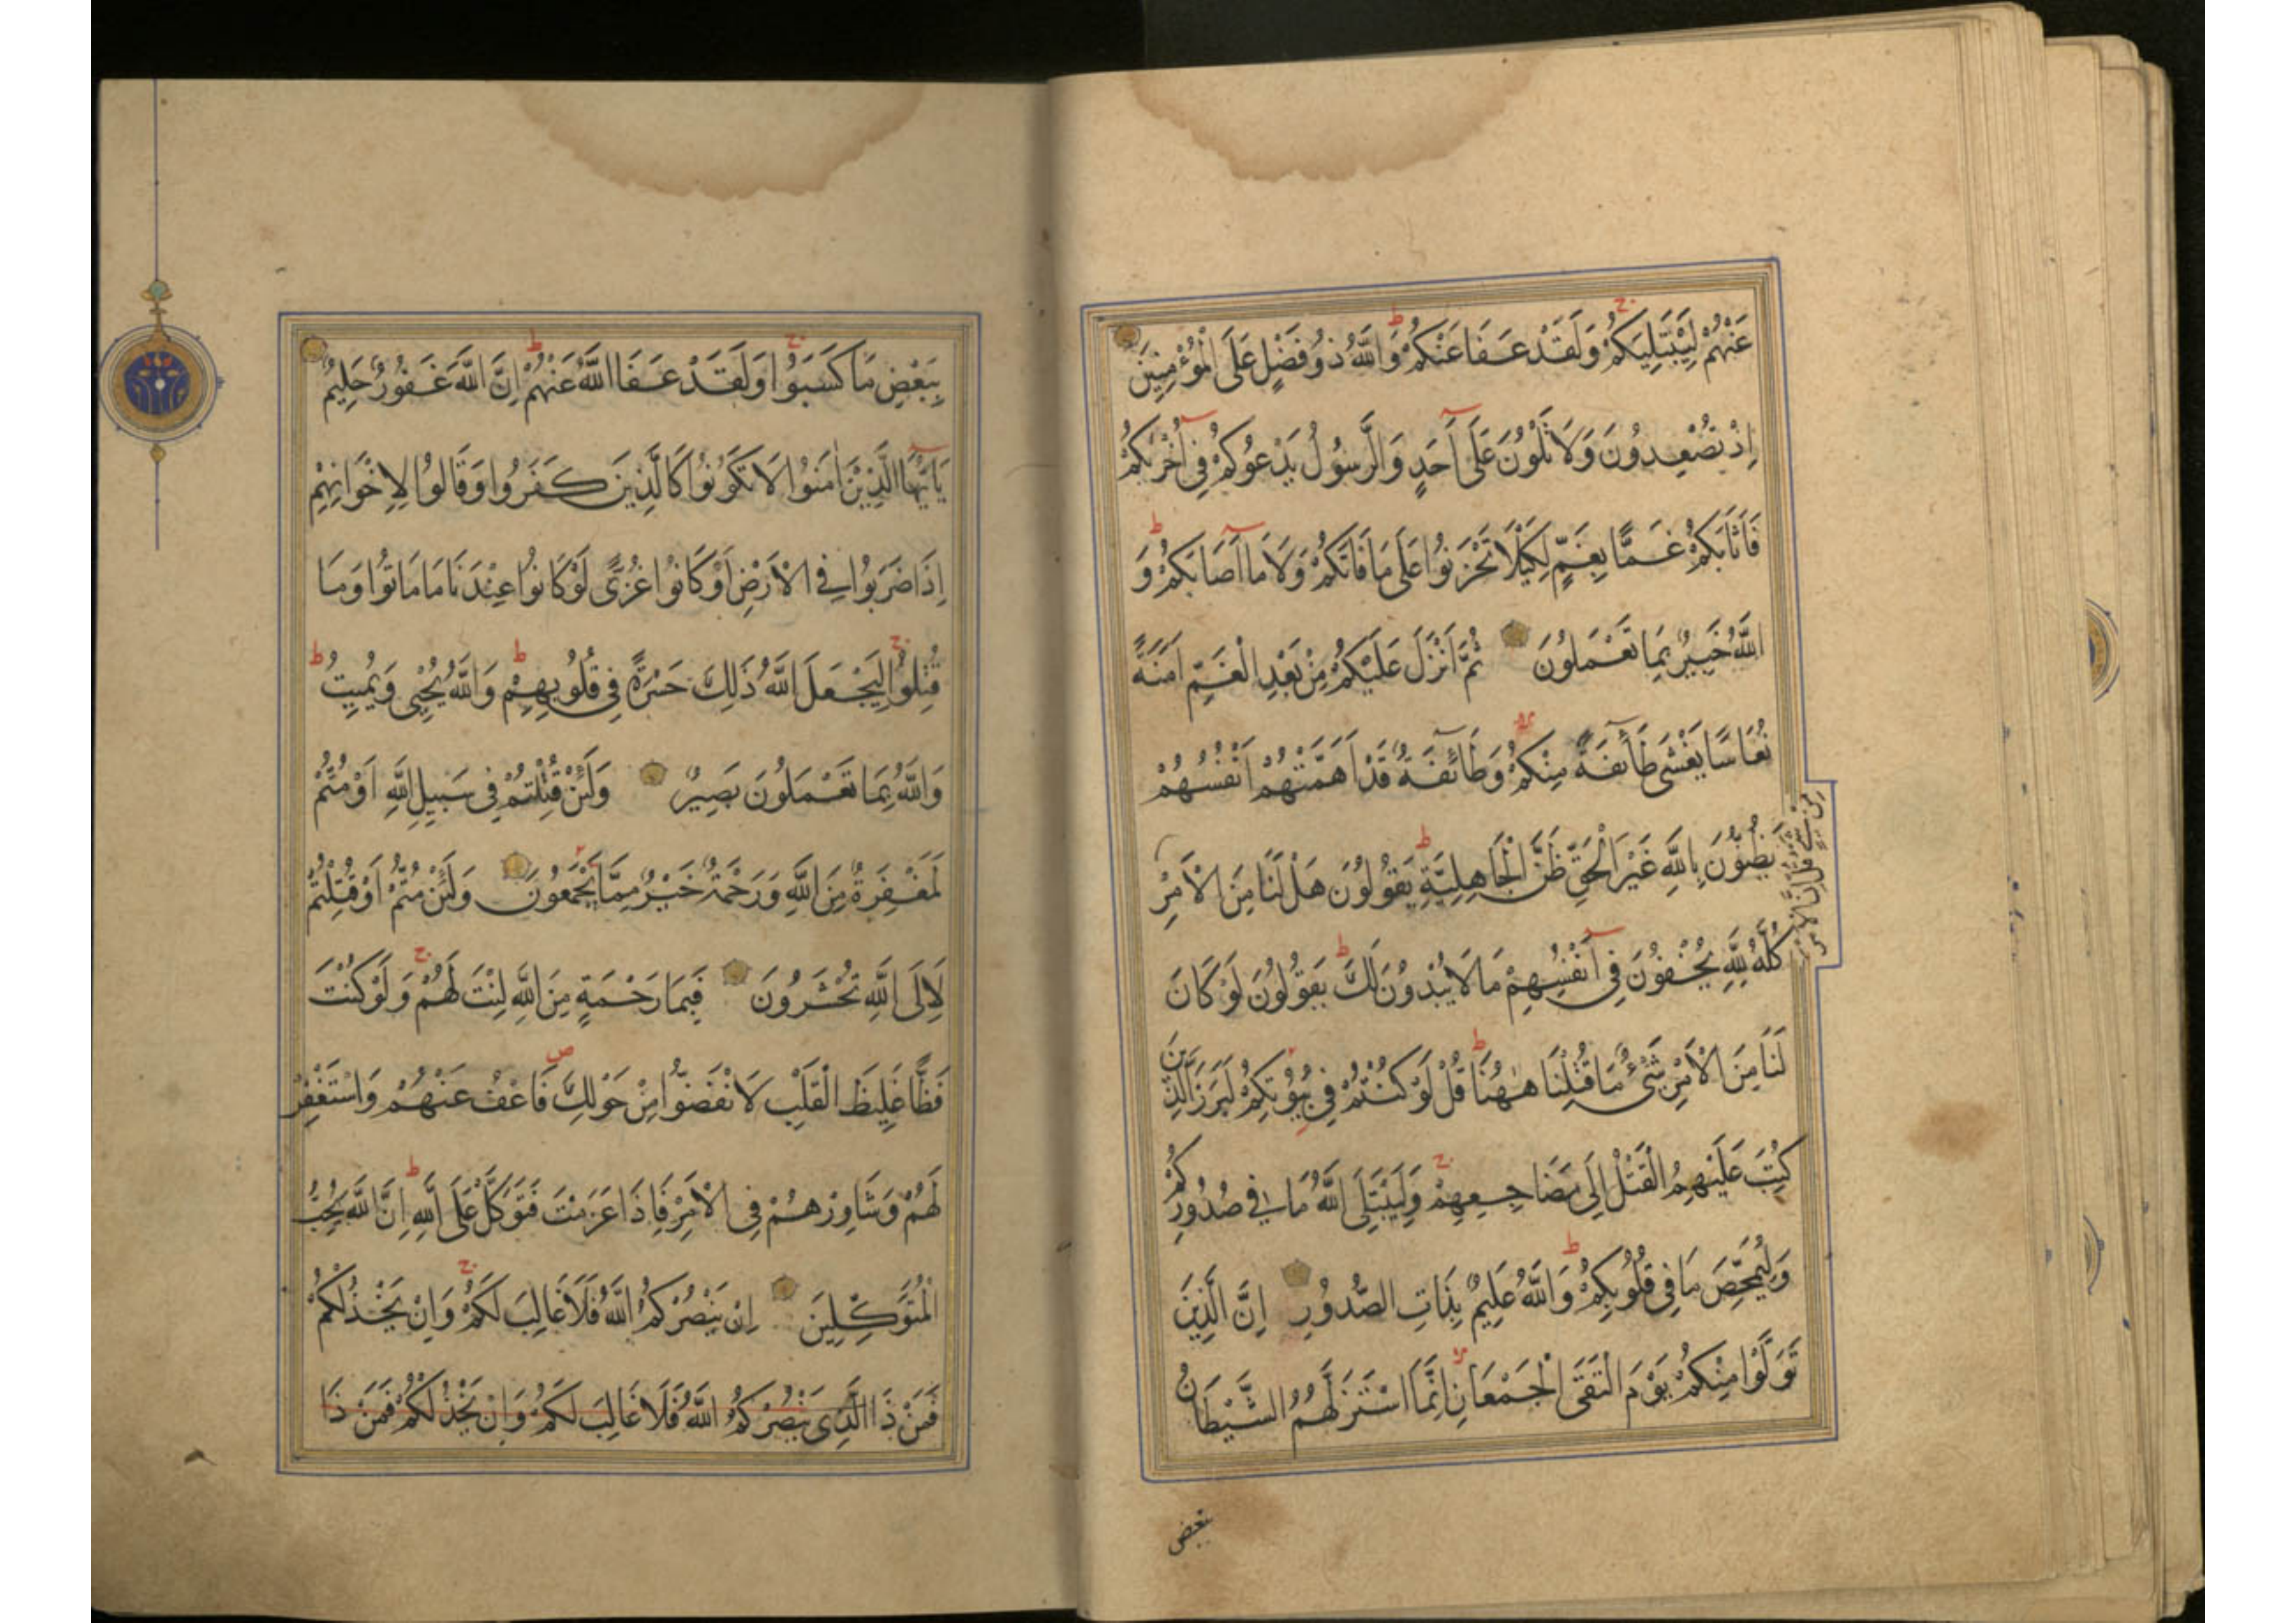 عَنْهُمْ لِيَبْتَلِيَكُمْ وَلَقَدْ عَفَا عَنْكُمْ وَاللَّهُ ذُو فَضْلٍ عَلَى الْمُؤْمِنِينَ
اِذْ تُصْعِدُونَ وَلَا تَلْوُنَ عَلَى اَحَدٍ وَالرَّسُولُ يَدْعُوكُمْ فِي اُخْرٰيكُمْ
فَاَثَابَكُمْ غَمًّا بِغَمٍّ لِكَيْلَا تَحْزَنُوا عَلَى مَا فَاتَكُمْ وَلَا مَا اَصَابَكُمْ وَ
اللَّهُ خَبِيرٌ بِمَا تَعْمَلُونَ ثُمَّ اَنْزَلَ عَلَيْكُمْ مِنْ بَعْدِ الْغَمِّ اَمَنَةً
نُعَاسًا يَغْشَى طَائِفَةً مِنْكُمْ وَطَائِفَةٌ قَدْ اَهَمَّتْهُمْ اَنْفُسُهُمْ
يَظُنُّونَ بِاللَّهِ غَيْرَ الْحَقِّ ظَنَّ الْجَاهِلِيَّةِ يَقُولُونَ هَلْ لَنَا مِنَ الْاَمْرِ
مِنْ شَيْءٍ قُلْ اِنَّ الْاَمْرَ
كُلَّهُ لِلَّهِ يُخْفُونَ فِي اَنْفُسِهِمْ مَا لَا يُبْدُونَ لَكَ يَقُولُونَ لَوْ كَانَ
لَنَا مِنَ الْاَمْرِ شَيْءٌ مَا قُتِلْنَا هٰهُنَا قُلْ لَوْ كُنْتُمْ فِي بُيُوتِكُمْ لَبَرَزَ الَّذِينَ
كُتِبَ عَلَيْهِمُ الْقَتْلُ اِلَى مَضَاجِعِهِمْ وَلِيَبْتَلِيَ اللَّهُ مَا فِي صُدُورِكُمْ
وَلِيُمَحِّصَ مَا فِي قُلُوبِكُمْ وَاللَّهُ عَلِيمٌ بِذَاتِ الصُّدُورِ اِنَّ الَّذِينَ
تَوَلَّوْا مِنْكُمْ يَوْمَ الْتَقَى الْجَمْعَانِ اِنَّمَا اسْتَزَلَّهُمُ الشَّيْطَانُ
بِبَعْضِ
بِبَعْضِ مَا كَسَبُوا وَلَقَدْ عَفَا اللَّهُ عَنْهُمْ اِنَّ اللَّهَ غَفُورٌ حَلِيمٌ
يَا اَيُّهَا الَّذِينَ اٰمَنُوا لَا تَكُونُوا كَالَّذِينَ كَفَرُوا وَقَالُوا لِاِخْوَانِهِمْ
اِذَا ضَرَبُوا فِي الْاَرْضِ اَوْ كَانُوا غُزًّى لَوْ كَانُوا عِنْدَنَا مَا مَاتُوا وَمَا
قُتِلُوا لِيَجْعَلَ اللَّهُ ذَلِكَ حَسْرَةً فِي قُلُوبِهِمْ وَاللَّهُ يُحْيِي وَيُمِيتُ
وَاللَّهُ بِمَا تَعْمَلُونَ بَصِيرٌ وَلَئِنْ قُتِلْتُمْ فِي سَبِيلِ اللَّهِ اَوْ مُتُّمْ
لَمَغْفِرَةٌ مِنَ اللَّهِ وَرَحْمَةٌ خَيْرٌ مِمَّا يَجْمَعُونَ وَلَئِنْ مُتُّمْ اَوْ قُتِلْتُمْ
لَاِلَى اللَّهِ تُحْشَرُونَ فَبِمَا رَحْمَةٍ مِنَ اللَّهِ لِنْتَ لَهُمْ وَلَوْ كُنْتَ
فَظًّا غَلِيظَ الْقَلْبِ لَانْفَضُّوا مِنْ حَوْلِكَ فَاعْفُ عَنْهُمْ وَاسْتَغْفِرْ
لَهُمْ وَشَاوِرْهُمْ فِي الْاَمْرِ فَاِذَا عَزَمْتَ فَتَوَكَّلْ عَلَى اللَّهِ اِنَّ اللَّهَ يُحِبُّ
الْمُتَوَكِّلِينَ اِنْ يَنْصُرْكُمُ اللَّهُ فَلَا غَالِبَ لَكُمْ وَاِنْ يَخْذُلْكُمْ
فَمَنْ ذَا الَّذِي يَنْصُرْكُمُ اللَّهُ فَلَا غَالِبَ لَكُمْ وَاِنْ يَخْذُلْكُمْ فَمَنْ ذَا